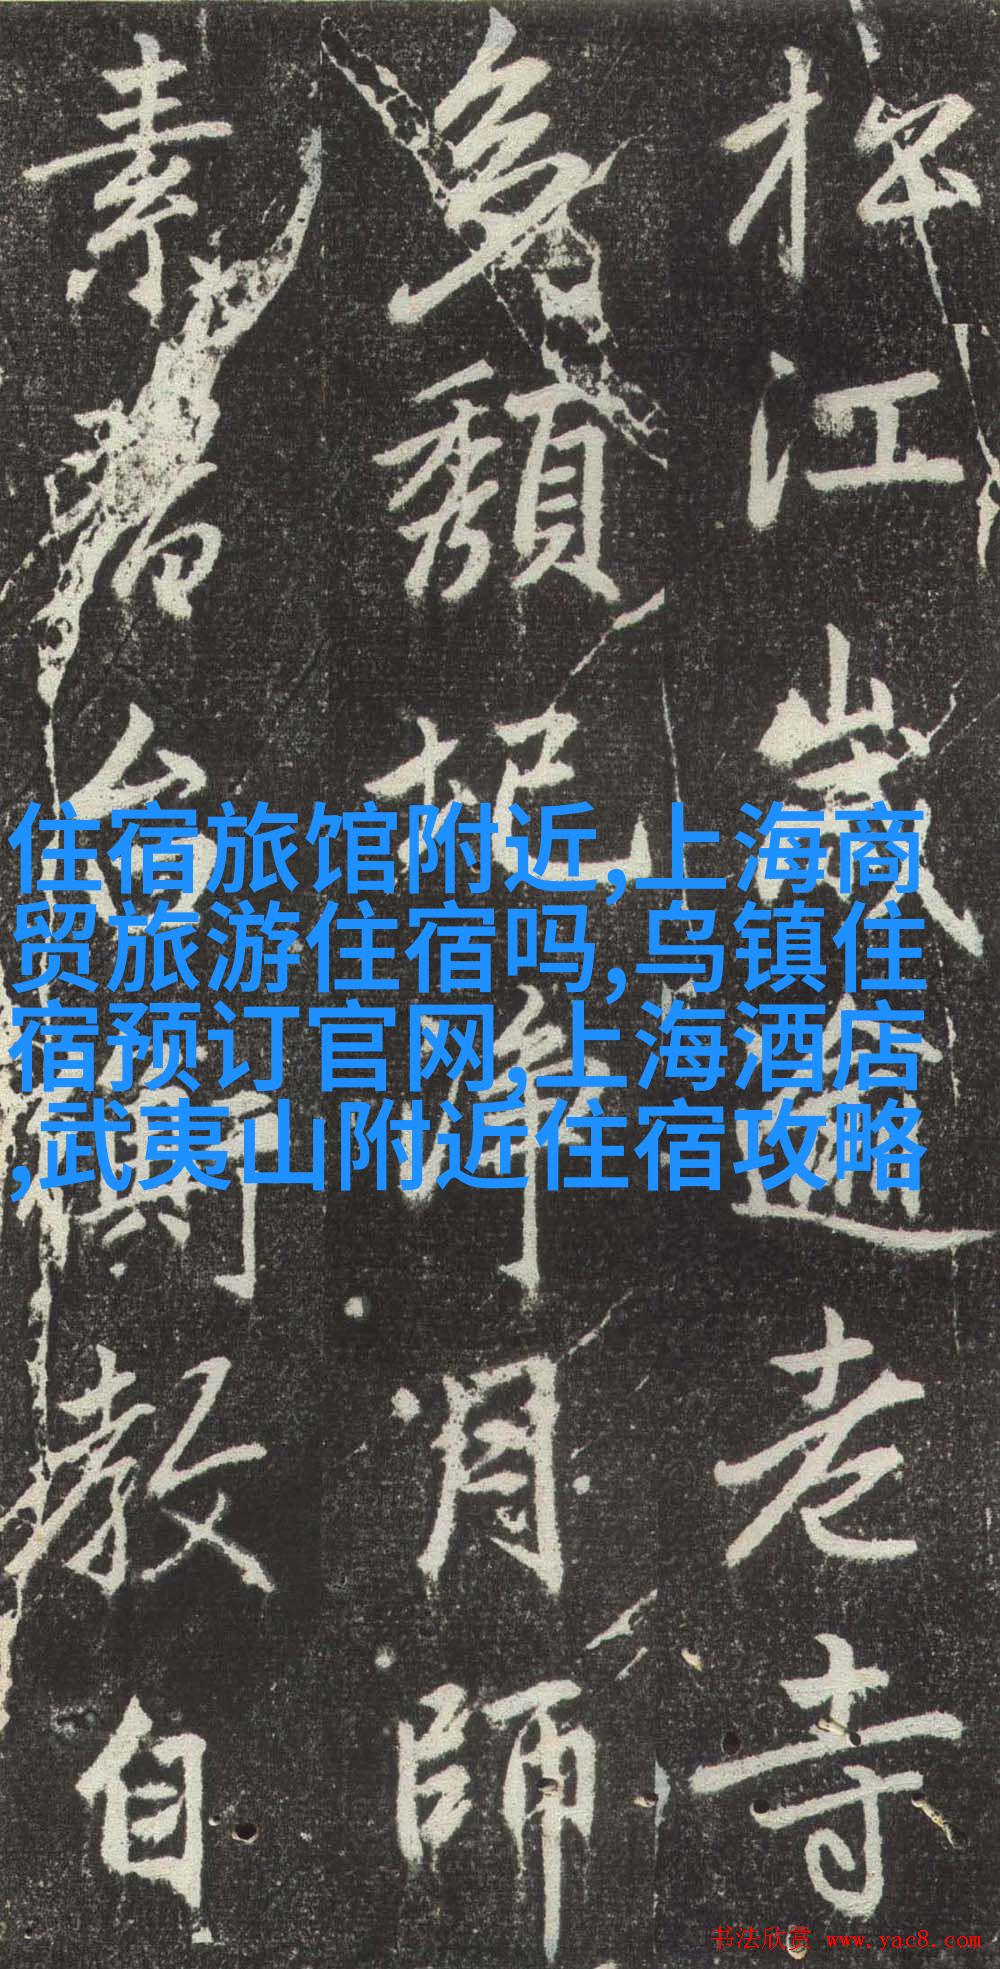 住宿旅馆附近,上海商
贸旅游住宿吗,乌镇住
宿预订官网,上海酒店
,武夷山附近住宿攻略
松江歲老寺
多頽圮月師
素習台衡教自
书法欣赏 www.yac8.com